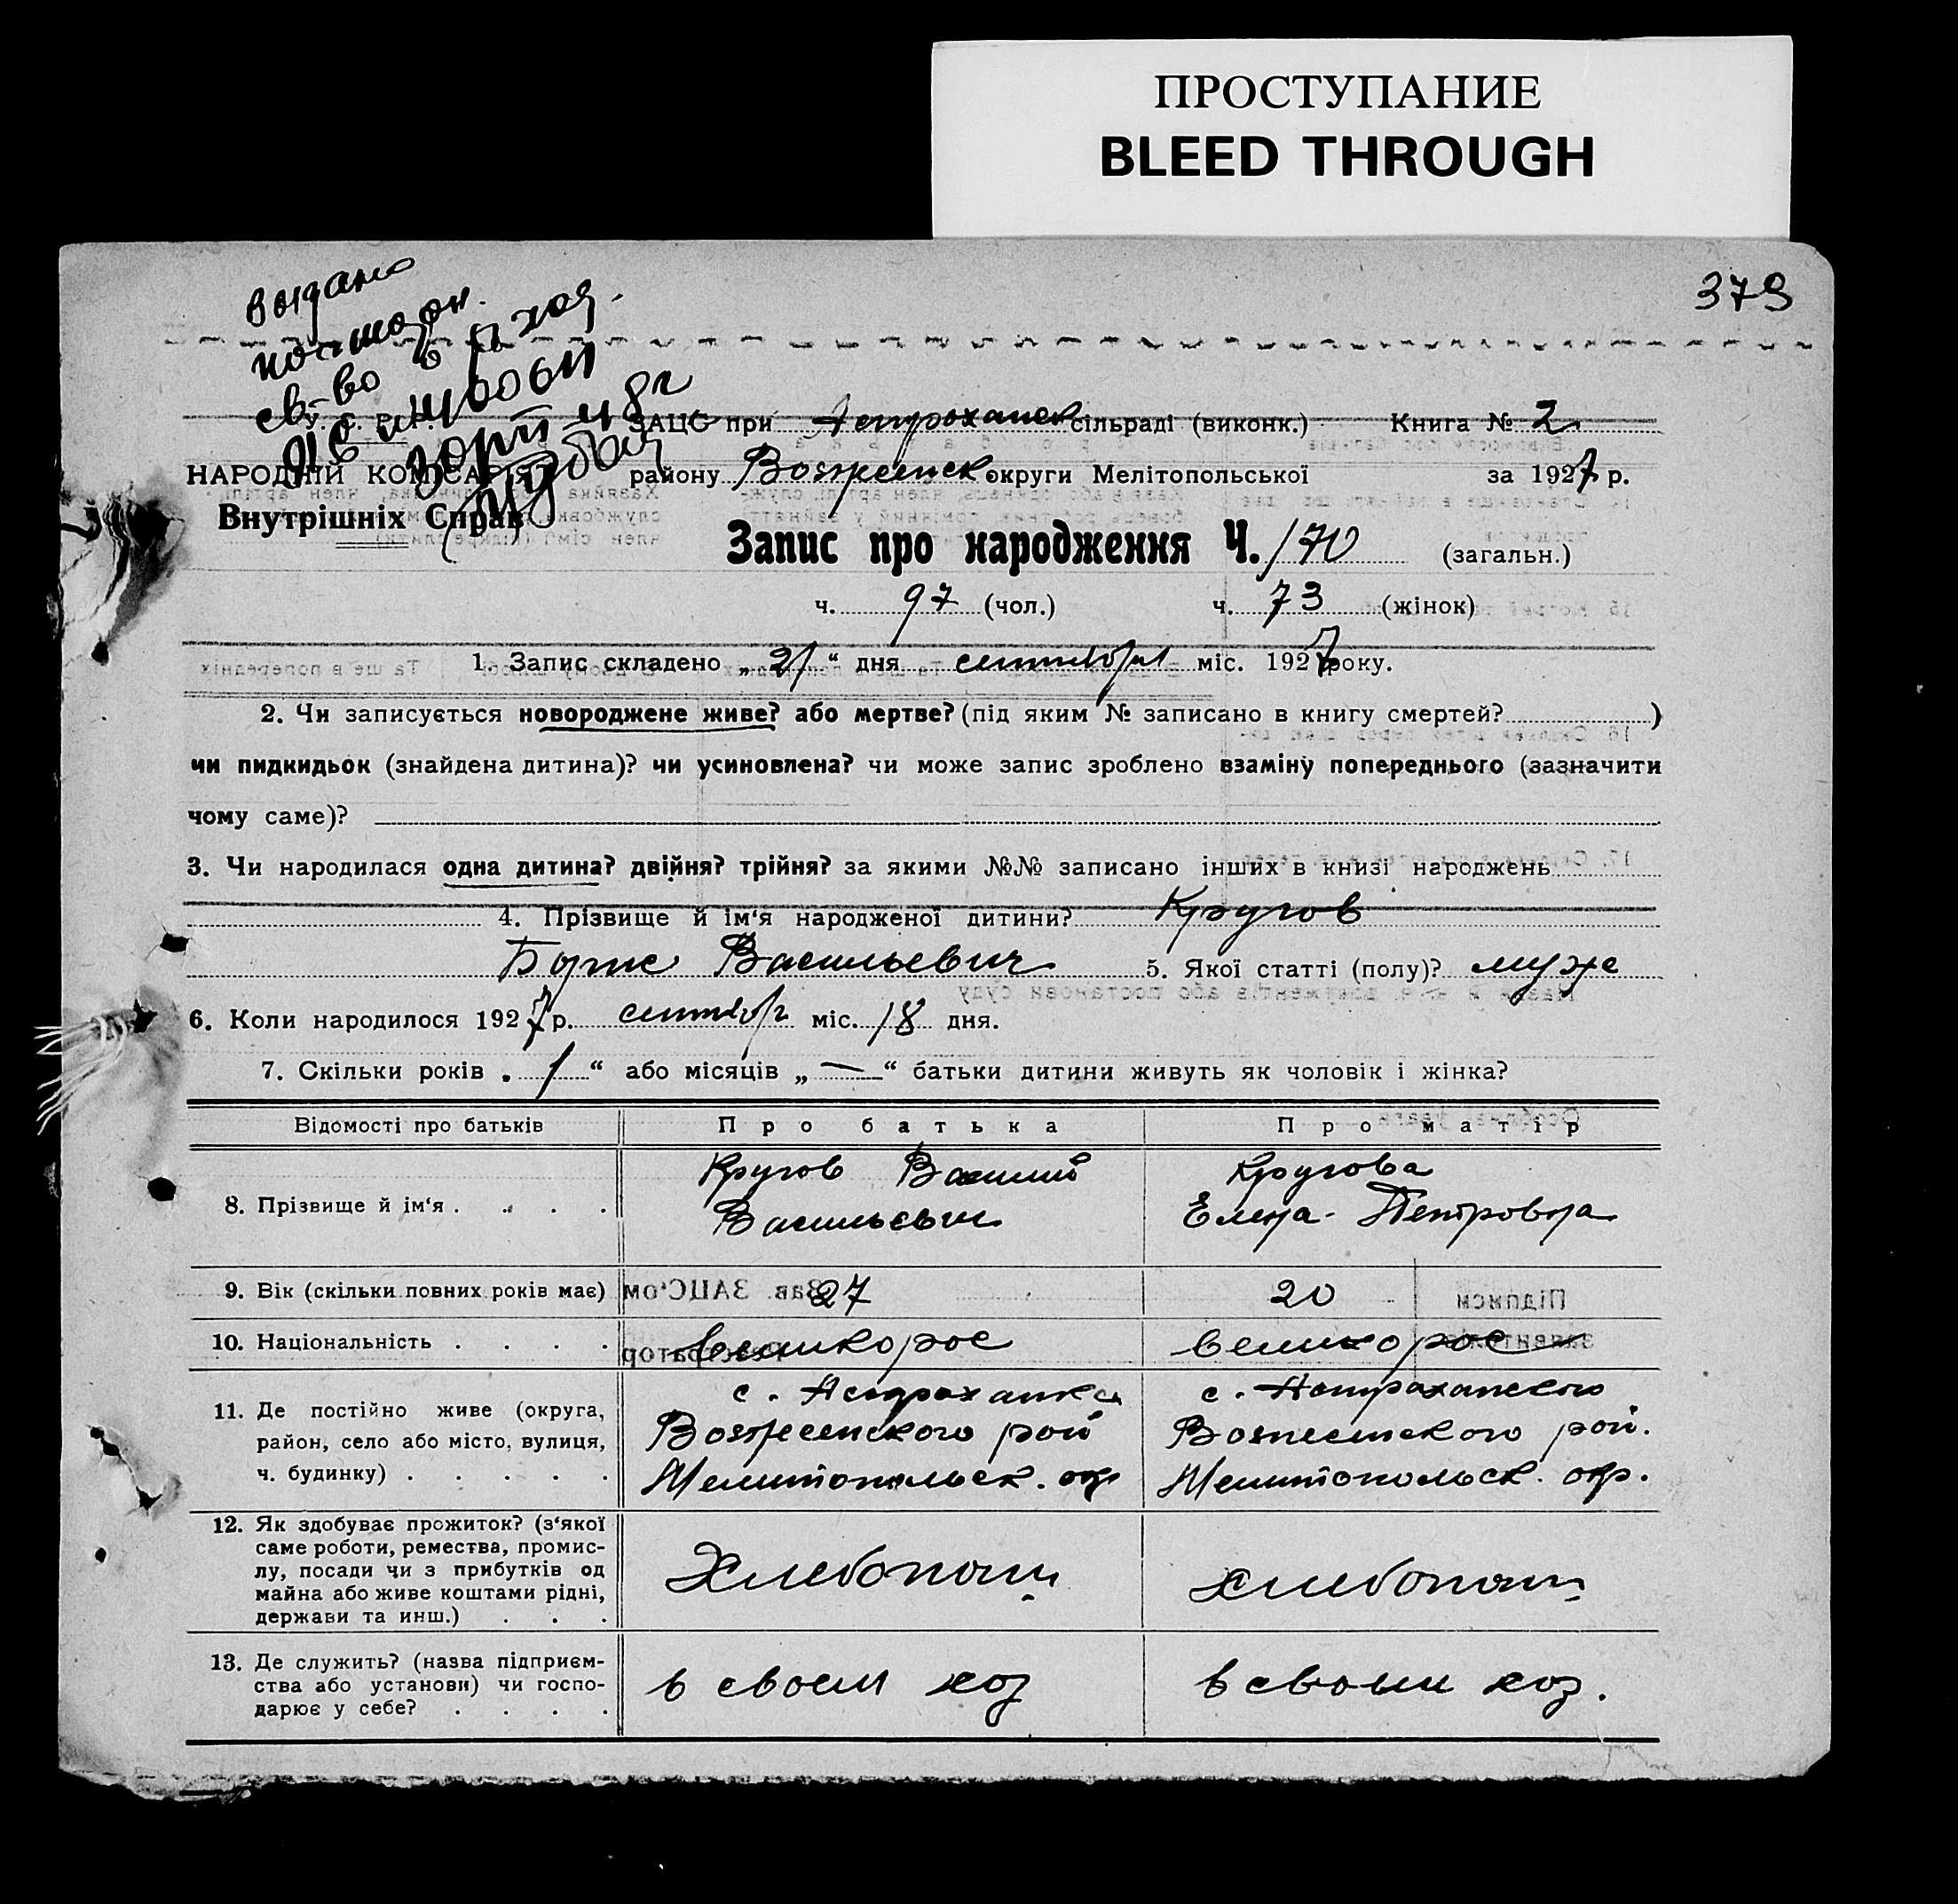 ПРОСТУПАНИЕ
BLEED THROUGH
379
выдано
повторн.
св-во о рожд.
У. С. Р. Р.
ЗАЦС при Астраханск сільраді (виконк.) Книга № 2
НАРОДНІЙ КОМІСАРІЯТ району Вознесенск округи Мелітопольської за 1927 р.
Внутрішніх Справ
Запис про народження Ч. 170 (загальн.)
ч. 97 (чол.) ч. 73 (жінок)
1. Запис складено „21“ дня сентября міс. 1927 року.
2. Чи записується новороджене живе? або мертве? (під яким № записано в книгу смертей? )
чи пидкидьок (знайдена дитина)? чи усиновлена? чи може запис зроблено взаміну попереднього (зазначити
чому саме)?
3. Чи народилася одна дитина? двійня? трійня? за якими №№ записано інших в книзі народжень
4. Прізвище й ім‘я народженої дитини? Кругов
Борис Васильевич 5. Якої статті (полу)? муже
6. Коли народилося 1927 р. сентябр міс. 18 дня.
7. Скільки років „ 1 “ або місяців „ — “ батьки дитини живуть як чоловік і жінка?
Відомості про батьків Про батька Про матір
8. Прізвище й ім‘я . . . . Кругов Василий Кругова
Васильевич Елена Петровна
9. Вік (скільки повних років має) 27 20
10. Національність . . . . великорос великорос
11. Де постійно живе (округа, с. Астраханка с. Астраханского
район, село або місто, вулиця, Вознесенского рой Вознесенского рой.
ч. будинку) . . . . . Мелитопольск. окр Мелитопольск. окр.
12. Як здобуває прожиток? (з‘якої
саме роботи, ремества, промис-
лу, посади чи з прибутків од Хлебопаш хлебопаш
майна або живе коштами рідні,
держави та инш.) . . .
13. Де служить? (назва підприєм-
ства або установи) чи госпо- в своем хоз в своем хоз.
дарює у себе? . . . .